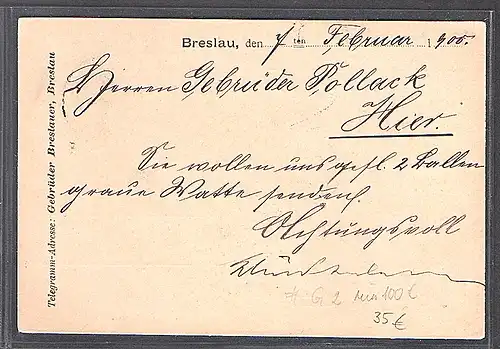 Breslau, den 7 ten Februar 1900.
Herren Gebrüder Pollack
Hier.
Sie wollen uns gefl. 2 Ballen
graue Watte senden.
Achtungsvoll
Telegramm-Adresse: Gebrüder Breslauer, Breslau
G 2 100 €
35 €